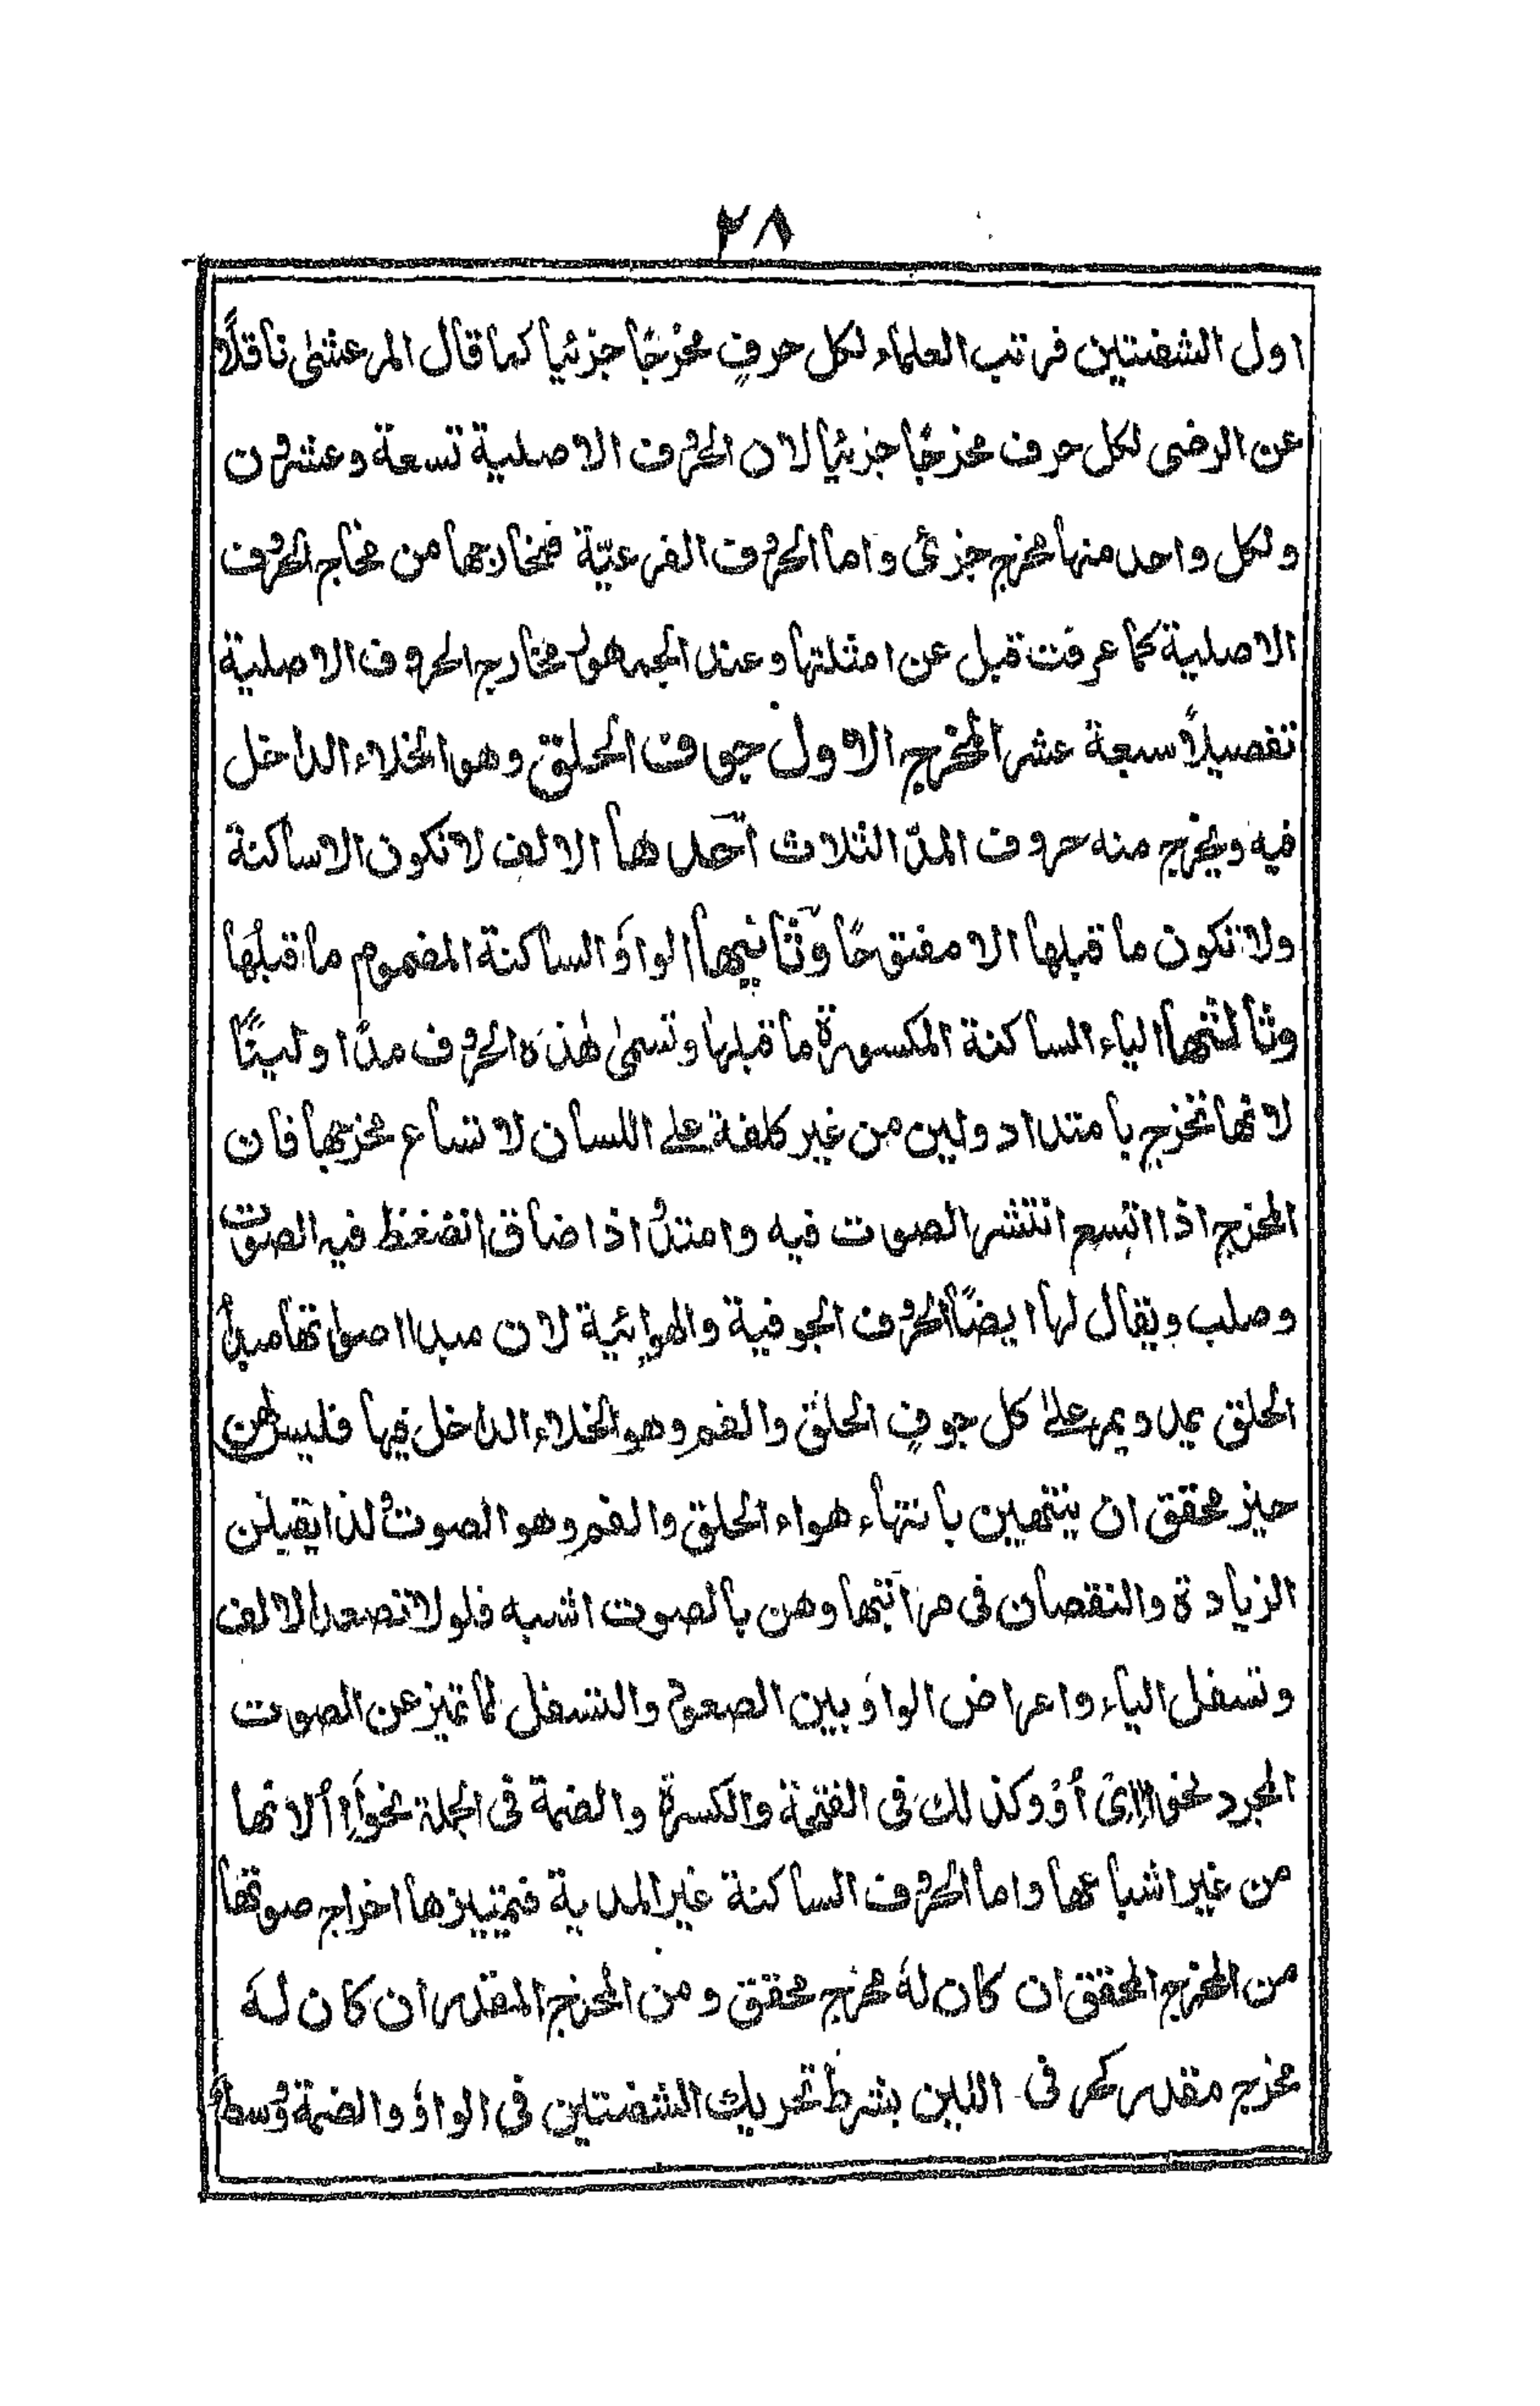 ٢٨
اول الشفتين فرتب العلماء لكل حرفٍ مخرجًا جزئيا كما قال المرعشى ناقلًا
عن الرضى لكل حرف مخرجًا جزئيا لان الحروف الاصلية تسعة وعشرون
ولكل واحد منها مخرج جزئ واما الحروف الفرعيّة فمخارجها من مخارج الحروف
الاصلية كما عرفت قبل عن امثلتها وعند الجمهور مخارج الحروف الاصلية
تفصيلاً سبعة عشر المخرج الاول جوف الحلق وهو الخلاء الداخل
فيه ويخرج منه حروف المدّ الثلاث احدها الالف لا تكون الا ساكنة
ولا تكون ما قبلها الا مفتوحًا وثانيها الواؤ الساكنة المضموم ما قبلها
وثالثها الياء الساكنة المكسورة ما قبلها وتسمى هٰذه الحروف مدًا ولينًا
لانها تخرج بامتداد ولين من غير كلفة على اللسان لاتساع مخرجها فان
المخرج اذا اتسع انتشر الصوت فيه وامتدّ اذا ضاق انضغظ فيه الصوت
وصلب ويقال لها ايضًا الحروف الجوفية والهوائية لان مبدا اصواتها مبدأ
الحلق يمد ويمر على كل جوفٍ الحلق والفم وهو الخلاء الداخل فيها فليس لهن
حيز محقق ان ينتهين بانتهاء هواء الحلق والفم وهو الصوت لذا يقبلن
الزيادة والنقصان فى مراتبها وهن بالصوت اشبه فلولا تصعد الالف
وتسفل الياء واعراض الواؤ بين الصعود والتسفل لما تميز عن الصوت
المجرد نحو اىْ أوْ وكذلك فى الفتحة والكسرة والضمة فى الجملة نحو الا نها
من غير اشباعها واما الحروف الساكنة غير المدية فتمييزها اخراج صوتها
من المخرج المحقق ان كان لهٗ مخرج محقق ومن المخرج المقدر ان كان لهٗ
مخرج مقدر كمر فى اللين بشرط تحريك الشفتين فى الواؤ والضمة ووسط